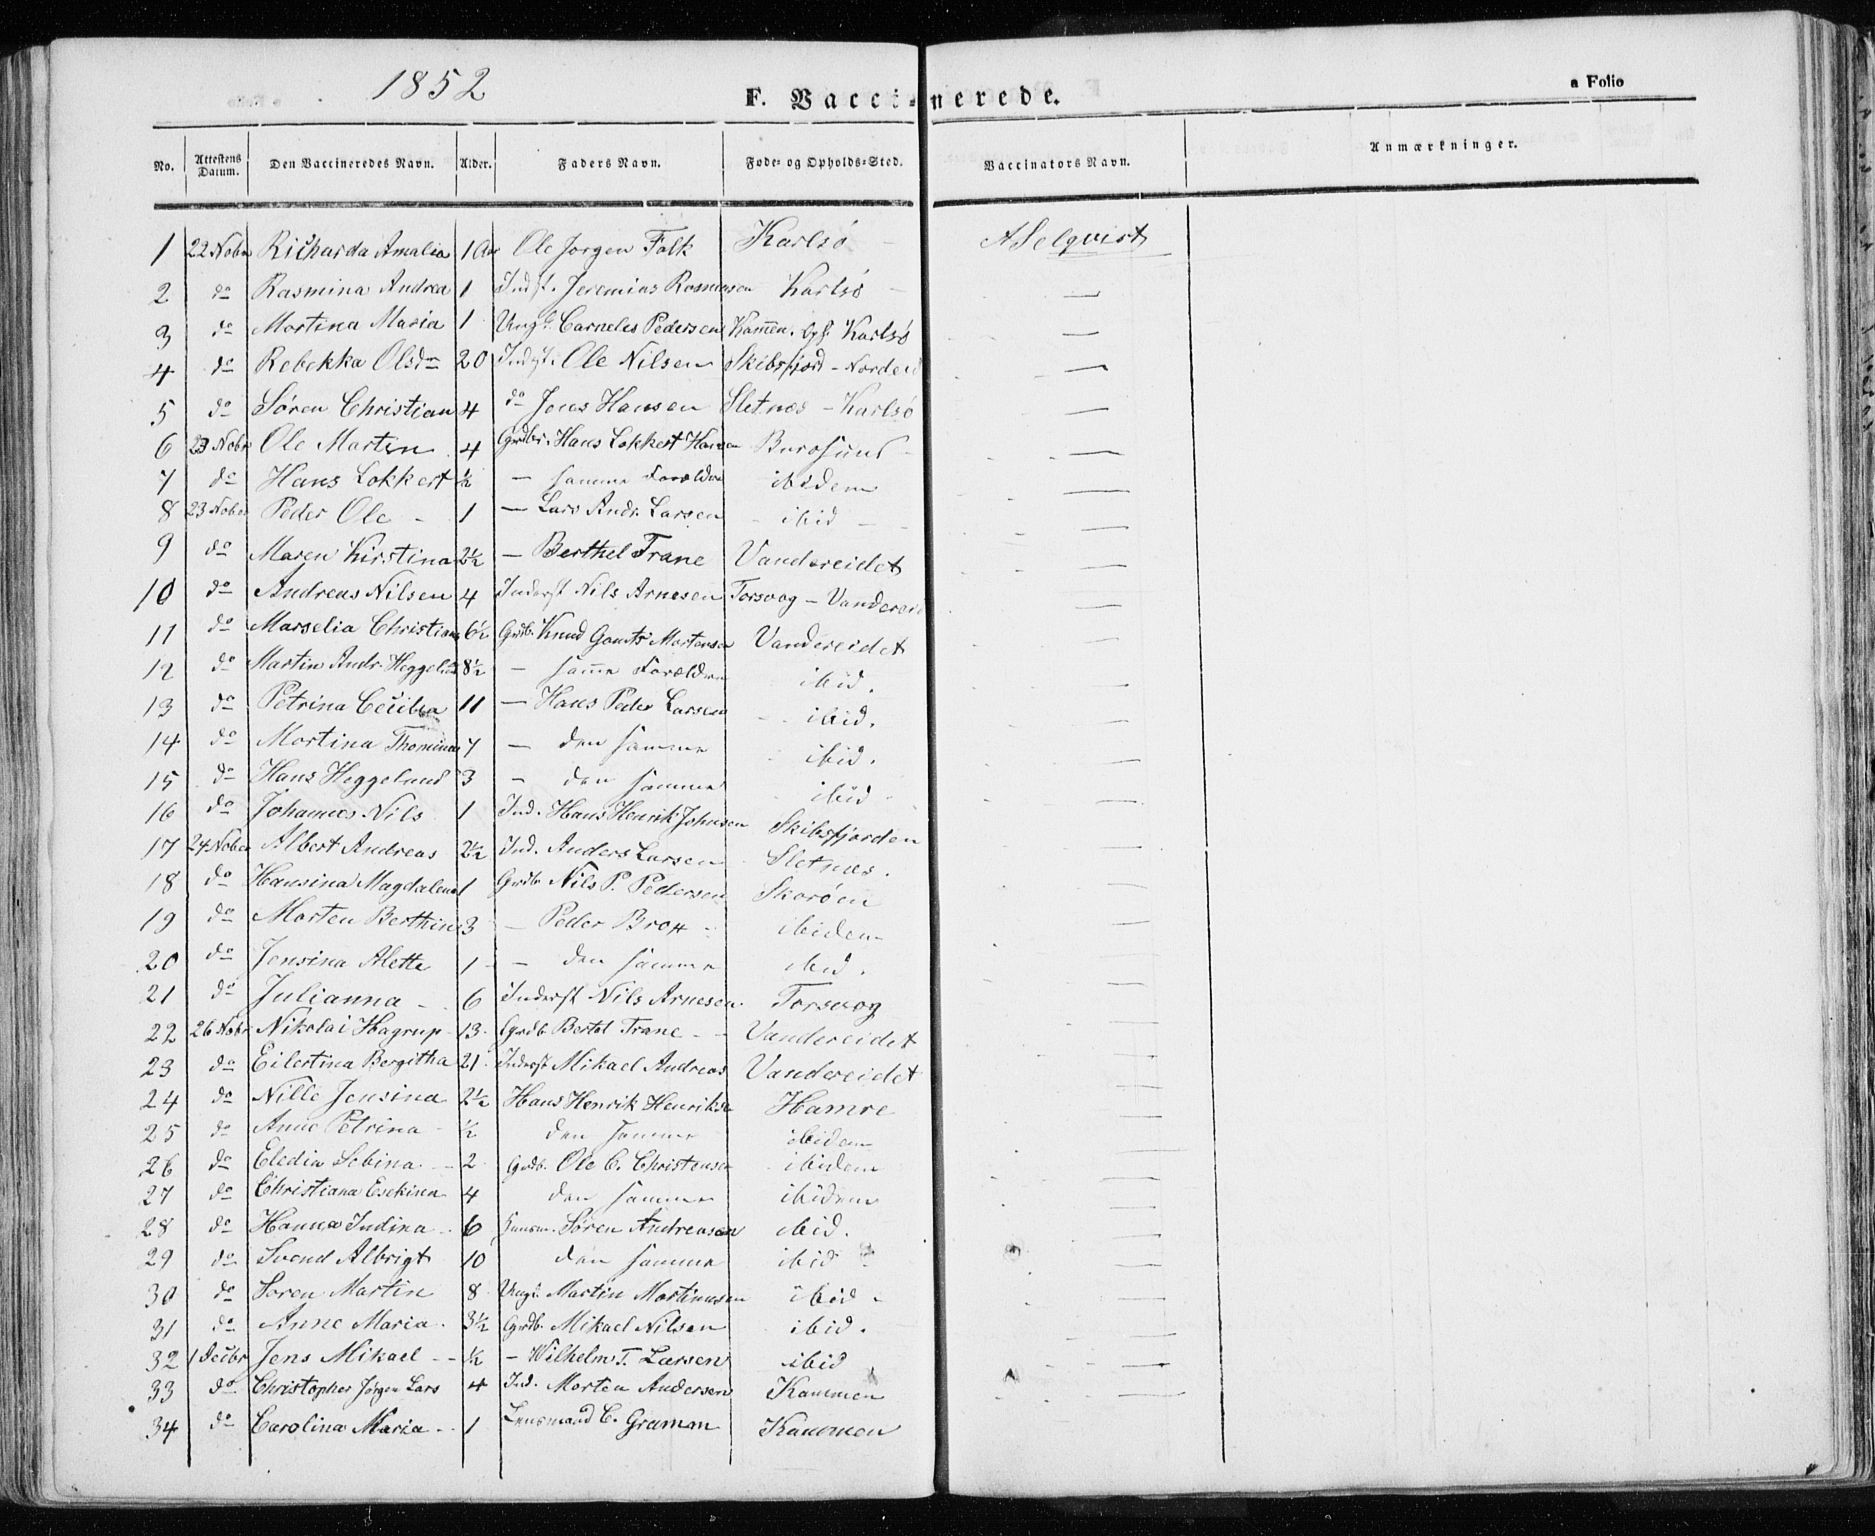 1852
F. Vaccinerede.
a Folio
No. Attestens Datum. Den Vaccineredes Navn. Alder. Faders Navn. Føde- og Opholds-Sted. Vaccinators Navn. Anmærkninger.
1 22 Nobr Richarda Amalia 1 Aar Ole Jørgen Falk Karlsø
2 do Rasmina Andrea 1 Indst. Jeremias Rasmusen Karlsø —
3 do Martina Maria 1 Ungk. Carneles Pedersen Kamen. Karlsø —
4 do Rebekka Olsdr 20 Indst. Ole Nilsen Skibsfjord - Nordeid —
5 do Søren Christian 4 do Jens Hansen Sletnæs - Karlsø —
6 23 Nobr Ole Martin 4 Grdbr. Hans Lokkert Hansen Burøsund —
7 do Hans Lokkert ½ — samme Forældre ibidem —
8 23 Nobr Peder Ole 1 — Lars Andr. Larsen ibid —
9 do Maren Kirstina 2½ — Berthel Trane Vandereidet —
10 do Andreas Nilsen 4 Inderst Nils Arnesen Torsvog - Vandereid —
11 do Marselia Christiana 6½ Grdb. Knud Mortensen Vandereidet —
12 do Martin Andr. Heggelund 8½ — samme Forældre ibid. —
13 do Petrina Cecilia 11 — Hans Peder Larsen ibid. —
14 do Martina Thomina 7 — den samme ibid. —
15 do Hans Heggelund 3 — den samme ibid —
16 do Johannes Nils 1 Ind. Hans Henrik Johnsen Skibsfjorden —
17 24 Nober Albert Andreas 2½ Ind. Anders Larsen Sletnæs. —
18 do Hansina Magdalena 1 Grdb Nils P. Pedersen Skorøen —
19 do Morten Berthin 3 — Peder Brox ibidem —
20 do Jensina Alette 1 — den samme ibid. —
21 do Julianna 6 Inderst Nils Arnesen. Torsvog —
22 26 Nobr Nikolai Hagrup 13 Grdb Bertel Trane Vandereidet —
23 do Eilertina Bergitha 21 Inderst Mikael Andreas Vandereidet —
24 do Nille Jensina 2½ Hans Henrik Henriksen Hamre —
25 do Anne Petrina ½ den samme ibidem —
26 do Eledia Sebina 2 Grdb. Ole C. Christensen ibidem —
27 do Christiana Esekina 4 den samme ibidem —
28 do Hanna Indina 6 Huusm. Søren Andreasen ibid. —
29 do Svend Albrigt 10 den samme ibid —
30 do Søren Martin 8 Ungk. Martin Martinusen ibid —
31 do Anne Maria 3½ Grdb. Mikael Nilsen ibid. —
32 1 Decbr Jens Mikael ½ — Wilhelm T. Larsen ibid —
33 do Christopher Jørgen Lars 4 Ind. Morten Andersen Kammen —
34 do Carolina Maria 1 Lensmand C. Kammen —